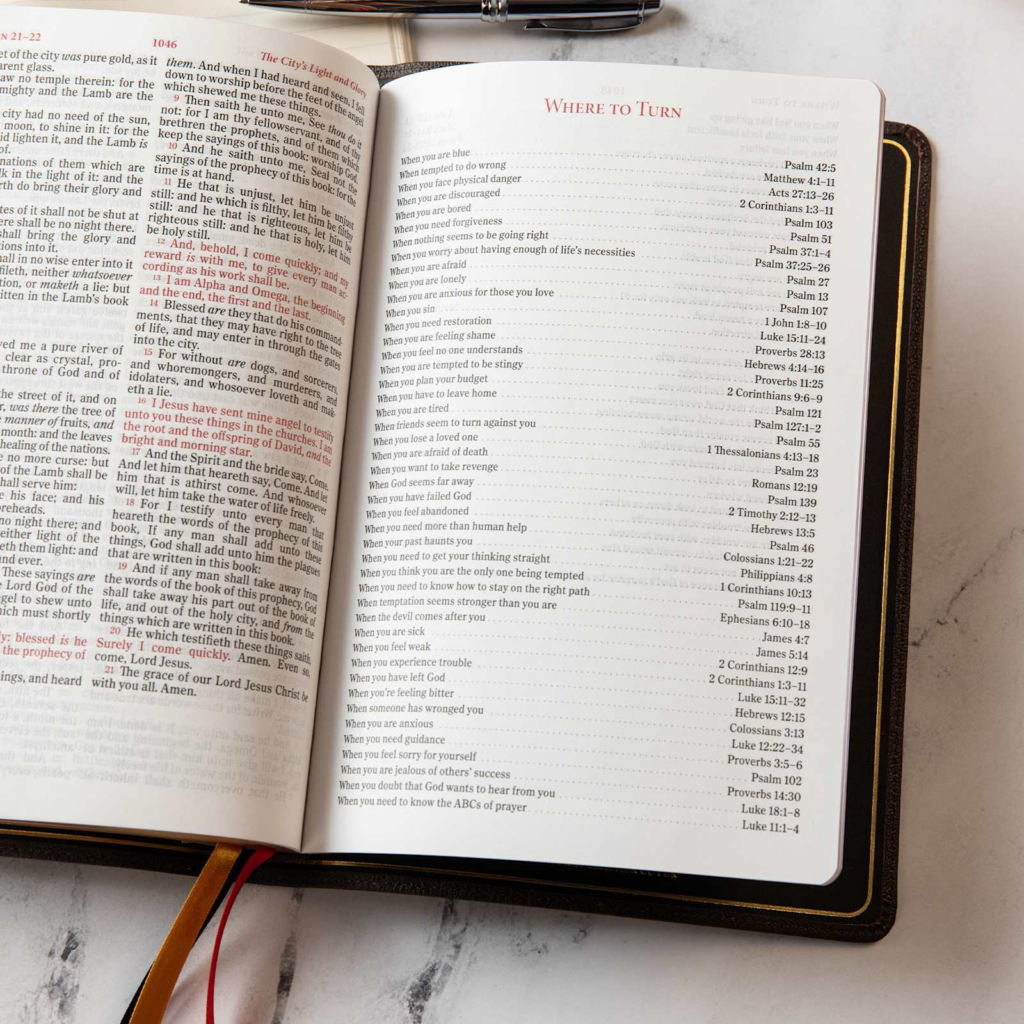 N 21–22
1046
The City's Light and Glory
et of the city was pure gold, as it
arent glass.
aw no temple therein: for the
mighty and the Lamb are the
city had no need of the sun,
moon, to shine in it: for the
id lighten it, and the Lamb is
of.
nations of them which are
lk in the light of it: and the
rth do bring their glory and
tes of it shall not be shut at
ere shall be no night there.
shall bring the glory and
ions into it.
hall in no wise enter into it
fileth, neither whatsoever
tion, or maketh a lie: but
ritten in the Lamb's book
ved me a pure river of
clear as crystal, pro-
throne of God and of
the street of it, and on
r, was there the tree of
manner of fruits, and
month: and the leaves
healing of the nations.
e no more curse: but
of the Lamb shall be
shall serve him:
e his face; and his
oreheads.
no night there; and
either light of the
eth them light: and
nd ever.
These sayings are
e Lord God of the
gel to shew unto
hich must shortly
ly: blessed is he
the prophecy of
ings, and heard
them. And when I had heard and seen, I fell
down to worship before the feet of the angel
which shewed me these things.
9 Then saith he unto me, See thou do it
not: for I am thy fellowservant, and of thy
brethren the prophets, and of them which
keep the sayings of this book: worship God.
10 And he saith unto me, Seal not the
sayings of the prophecy of this book: for the
time is at hand.
11 He that is unjust, let him be unjust
still: and he which is filthy, let him be filthy
still: and he that is righteous, let him be
righteous still: and he that is holy, let him
be holy still.
12 And, behold, I come quickly; and my
reward is with me, to give every man ac-
cording as his work shall be.
13 I am Alpha and Omega, the beginning
and the end, the first and the last.
14 Blessed are they that do his command-
ments, that they may have right to the tree
of life, and may enter in through the gates
into the city.
15 For without are dogs, and sorcerers,
and whoremongers, and murderers, and
idolaters, and whosoever loveth and mak-
eth a lie.
16 I Jesus have sent mine angel to testify
unto you these things in the churches. I am
the root and the offspring of David, and the
bright and morning star.
17 And the Spirit and the bride say, Come.
And let him that heareth say, Come. And let
him that is athirst come. And whosoever
will, let him take the water of life freely.
18 For I testify unto every man that
heareth the words of the prophecy of this
book, If any man shall add unto these
things, God shall add unto him the plagues
that are written in this book:
19 And if any man shall take away from
the words of the book of this prophecy, God
shall take away his part out of the book of
life, and out of the holy city, and from the
things which are written in this book.
20 He which testifieth these things saith,
Surely I come quickly. Amen. Even so,
come, Lord Jesus.
21 The grace of our Lord Jesus Christ be
with you all. Amen.
WHERE TO TURN
When you are blue Psalm 42:5
When tempted to do wrong Matthew 4:1–11
When you face physical danger Acts 27:13–26
When you are discouraged 2 Corinthians 1:3–11
When you are bored Psalm 103
When you need forgiveness Psalm 51
When nothing seems to be going right Psalm 37:1–4
When you worry about having enough of life's necessities Psalm 37:25–26
When you are afraid Psalm 27
When you are lonely Psalm 13
When you are anxious for those you love Psalm 107
When you sin 1 John 1:8–10
When you need restoration Luke 15:11–24
When you are feeling shame Proverbs 28:13
When you feel no one understands Hebrews 4:14–16
When you are tempted to be stingy Proverbs 11:25
When you plan your budget 2 Corinthians 9:6–9
When you have to leave home Psalm 121
When you are tired Psalm 127:1–2
When friends seem to turn against you Psalm 55
When you lose a loved one 1 Thessalonians 4:13–18
When you are afraid of death Psalm 23
When you want to take revenge Romans 12:19
When God seems far away Psalm 139
When you have failed God 2 Timothy 2:12–13
When you feel abandoned Hebrews 13:5
When you need more than human help Psalm 46
When your past haunts you Colossians 1:21–22
When you need to get your thinking straight Philippians 4:8
When you think you are the only one being tempted 1 Corinthians 10:13
When you need to know how to stay on the right path Psalm 119:9–11
When temptation seems stronger than you are Ephesians 6:10–18
When the devil comes after you James 4:7
When you are sick James 5:14
When you feel weak 2 Corinthians 12:9
When you experience trouble 2 Corinthians 1:3–11
When you have left God Luke 15:11–32
When you're feeling bitter Hebrews 12:15
When someone has wronged you Colossians 3:13
When you are anxious Luke 12:22–34
When you need guidance Proverbs 3:5–6
When you feel sorry for yourself Psalm 102
When you are jealous of others' success Proverbs 14:30
When you doubt that God wants to hear from you Luke 18:1–8
When you need to know the ABCs of prayer Luke 11:1–4